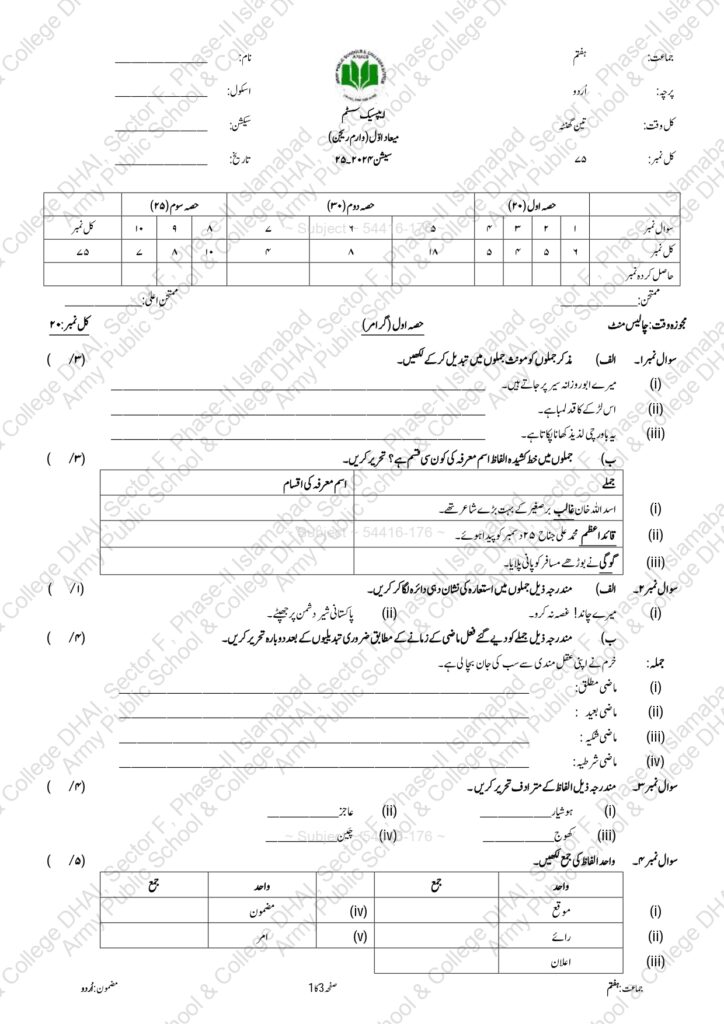 جماعت: ہفتم
نام: ____________
پرچہ: اُردو
اسکول: ____________
کل وقت: تین گھنٹہ
سیکشن: ____________
کل نمبر: ۷۵
تاریخ: ____________
ARMY PUBLIC SCHOOLS & COLLEGES SYSTEM
APSACS
ایپسیک سسٹم
میعاد اوّل (وارم ریجن)
سیشن ۲۰۲۴ـ۲۵
حصہ اول (۲۰) حصہ دوم (۳۰) حصہ سوم (۲۵)
سوال نمبر ۱ ۲ ۳ ۴ ۵ ۶ ۷ ۸ ۹ ۱۰ کل نمبر
کل نمبر ۶ ۵ ۴ ۵ ۱۸ ۸ ۴ ۱۰ ۸ ۷ ۷۵
حاصل کردہ نمبر
ممتحن: ____________ ممتحن اعلیٰ: ____________
مجوزہ وقت: چالیس منٹ حصہ اول (گرامر) کل نمبر: ۲۰
سوال نمبر ۱۔ الف) مذکر جملوں کو مونث جملوں میں تبدیل کر کے لکھیں۔ ( /۳)
(i) میرے ابو روزانہ سیر پر جاتے ہیں۔ ____________
(ii) اس لڑکے کا قد لمبا ہے۔ ____________
(iii) یہ باورچی لذیذ کھانا پکاتا ہے۔ ____________
ب) جملوں میں خط کشیدہ الفاظ اسم معرفہ کی کون سی قسم ہے؟ تحریر کریں۔ ( /۳)
جملے اسم معرفہ کی اقسام
(i) اسد اللہ خان غالب برصغیر کے بہت بڑے شاعر تھے۔
(ii) قائد اعظم محمد علی جناح ۲۵ دسمبر کو پیدا ہوئے۔
(iii) گوگی نے بوڑھے مسافر کو پانی پلایا۔
سوال نمبر ۲۔ الف) مندرجہ ذیل جملوں میں استعارہ کی نشان دہی دائرہ لگا کر کریں۔ ( /۱)
(i) میرے چاند! غصہ نہ کرو۔ (ii) پاکستانی شیر دشمن پر جھپٹے۔
ب) مندرجہ ذیل جملے کو دیے گئے فعل ماضی کے زمانے کے مطابق ضروری تبدیلیوں کے بعد دوبارہ تحریر کریں۔ ( /۴)
جملہ: خرم نے اپنی عقل مندی سے سب کی جان بچالی ہے۔
(i) ماضی مطلق: ____________
(ii) ماضی بعید : ____________
(iii) ماضی شکیہ : ____________
(iv) ماضی شرطیہ: ____________
سوال نمبر ۳۔ مندرجہ ذیل الفاظ کے مترادف تحریر کریں۔ ( /۴)
(i) ہوشیار ____________ (ii) عاجز ____________
(iii) کھوج ____________ (iv) چَین ____________
سوال نمبر ۴۔ واحد الفاظ کی جمع لکھیں۔ ( /۵)
واحد جمع واحد جمع
(i) موقع (iv) مضمون
(ii) رائے (v) امر
(iii) اعلان
جماعت: ہفتم صفحہ 3 کا 1 مضمون: اُردو
Army Public School & College DHAI, Sector F, Phase-II Islamabad
~ Subject ~ 54416-176 ~